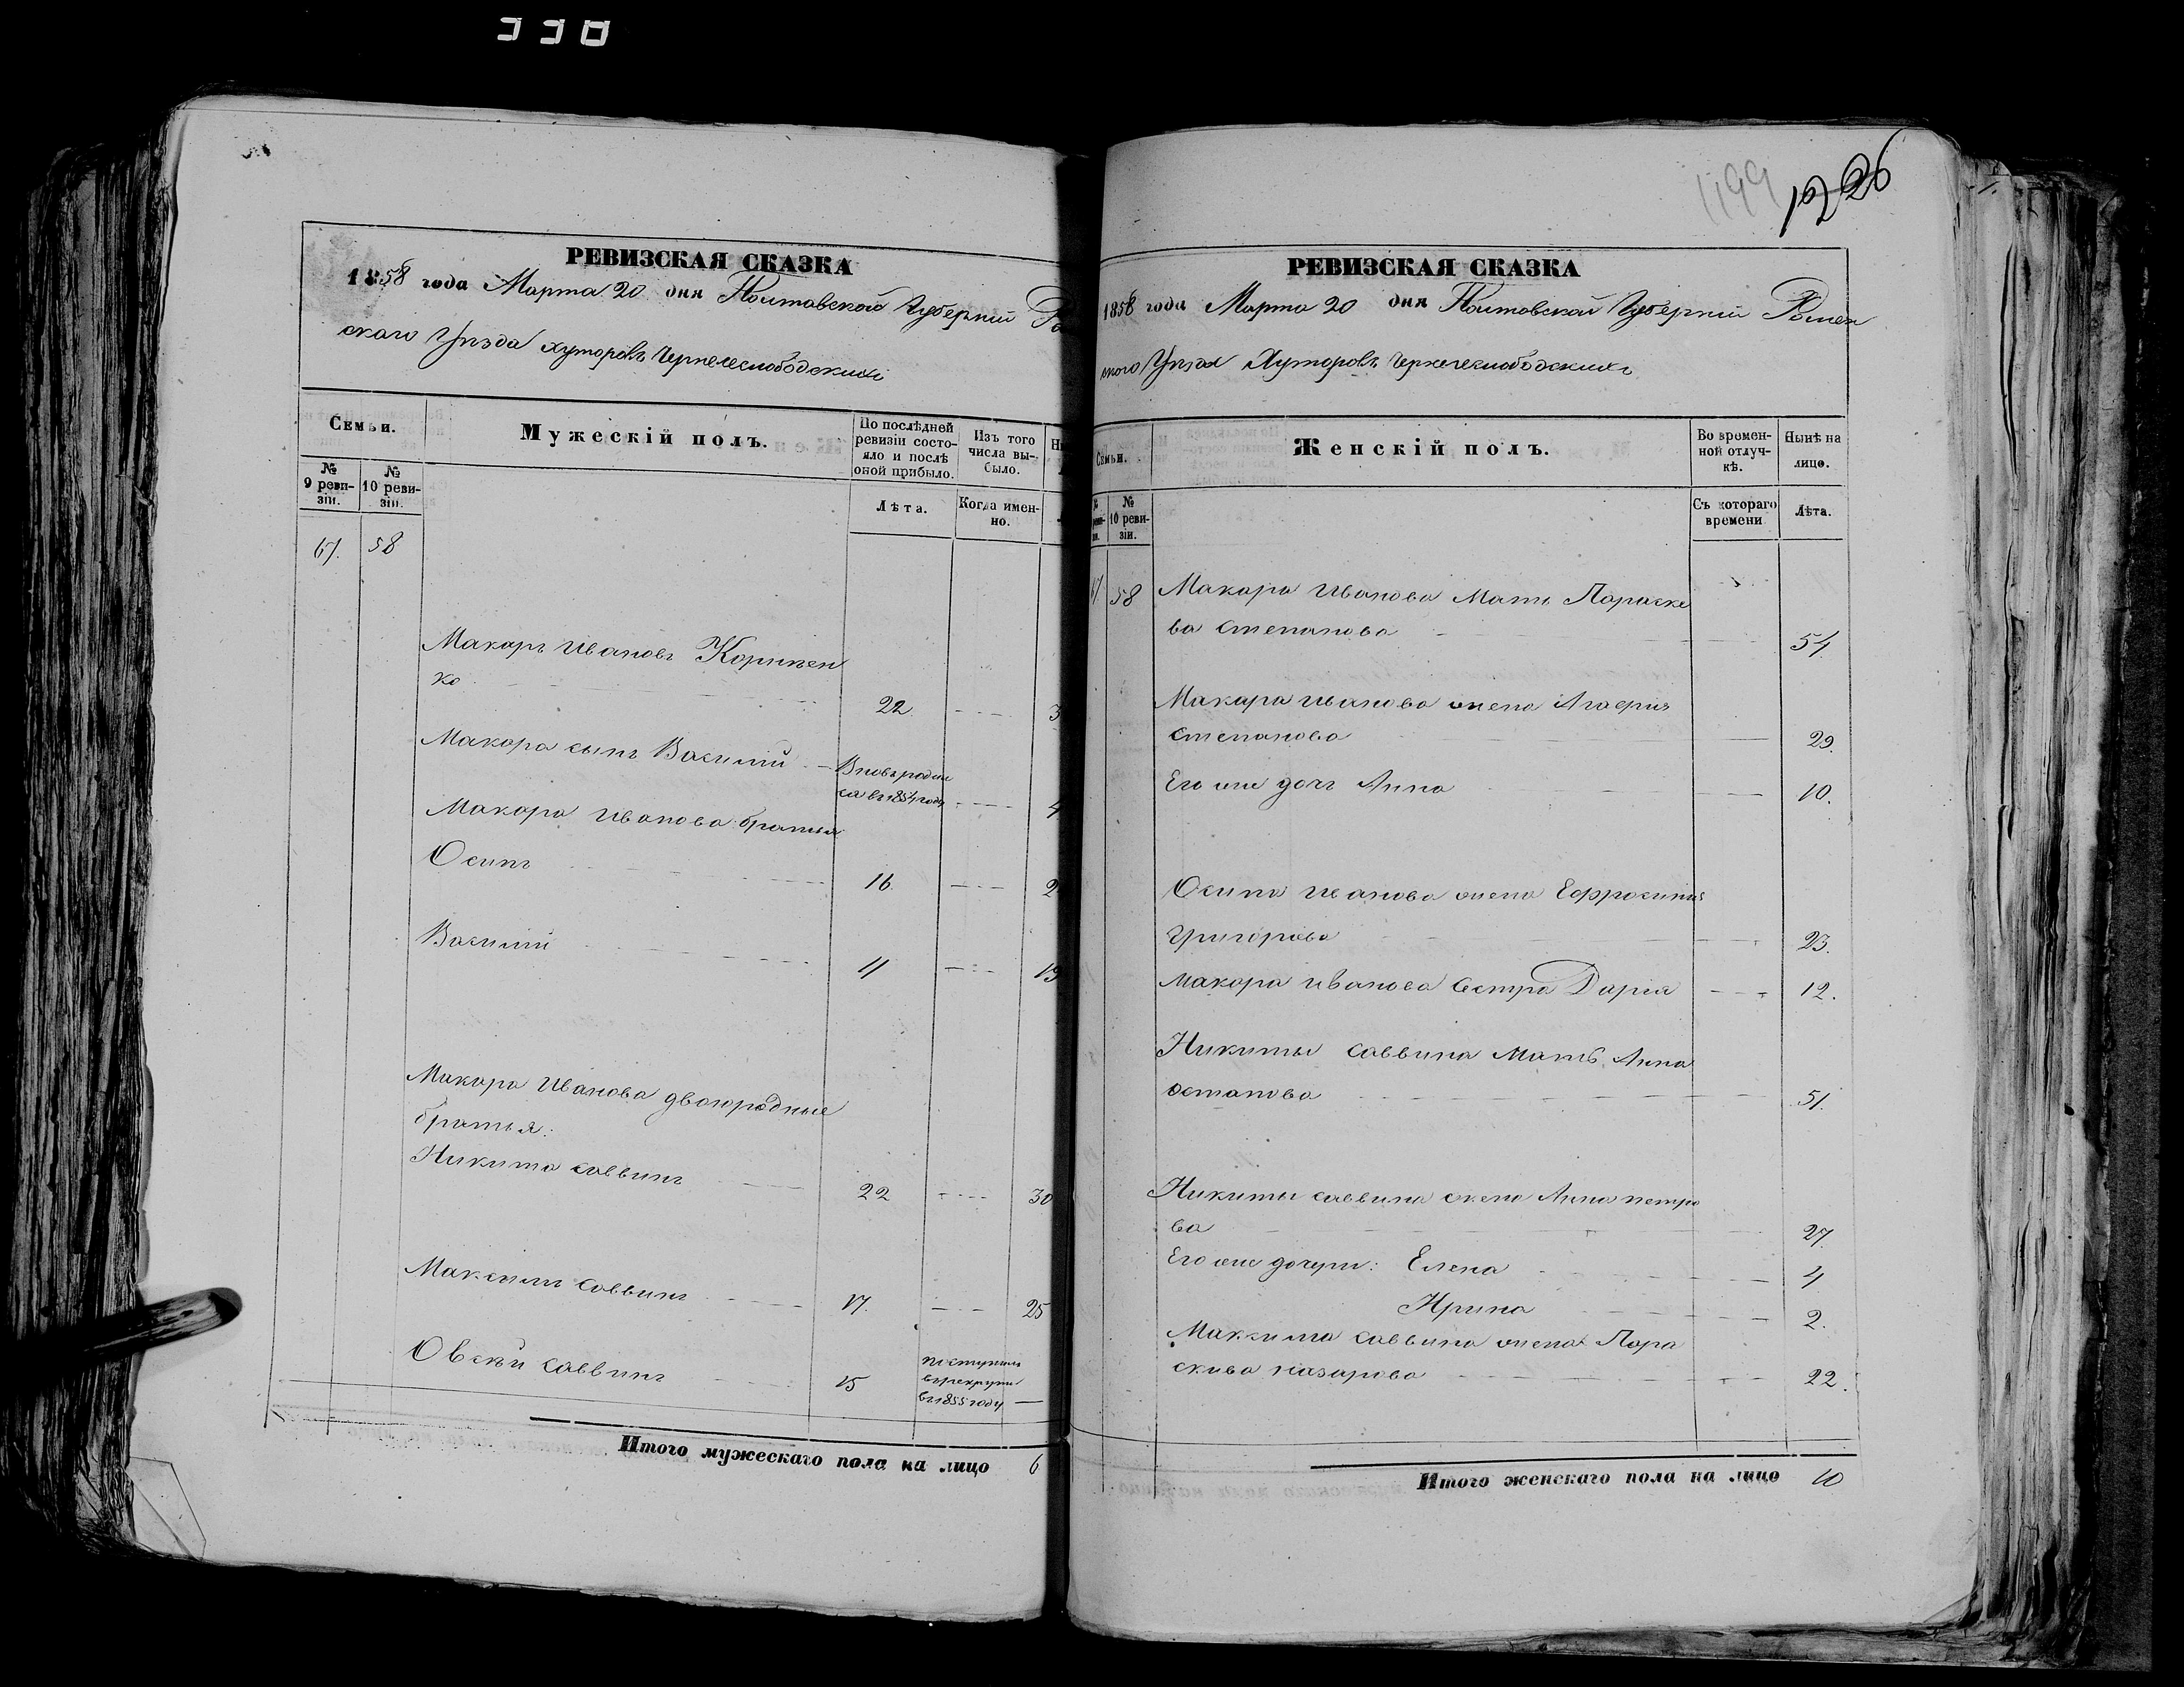 1199 1226
РЕВИЗСКАЯ СКАЗКА
1858 года Марта 20 дня Полтавской Губернiи
скаго Уѣзда хуторовъ Черпелеслободскихъ
Семьи.
Мужескiй полъ.
По послѣдней ревизiи состояло и послѣ оной прибыло.
Изъ того числа выбыло.
№ 9 ревизiи.
№ 10 ревизiи.
Лѣта.
Когда именно.
67. 58
Макаръ Ивановъ
ко 22
Макара сынъ Василiй Вновь родил
ся въ 1854 году 4
Макара Иванова братья
Осипъ 16
Василiй 11 19
Макара Иванова двоюродные
братья:
Никита Саввинъ 22 30
Максимъ Саввинъ 17. 25
Овсѣй Саввинъ 15 поступилъ
въ рекруты
въ 1855 году
Итого мужескаго пола на лицо 6
РЕВИЗСКАЯ СКАЗКА
1858 года Марта 20 дня Полтавской Губернiи Ромен
скаго Уѣзда Хуторовъ
Семьи.
Женскiй полъ.
Во временной отлучкѣ.
Нынѣ на лицо.
№ 10 ревизiи.
Съ котораго времени
Лѣта.
58 Макара Иванова Мать Параске
ва Степанова 54
Макара Иванова жена Агафiя
Степанова 29.
Его же дочь Анна 10.
Осипа Иванова жена Ефросинiя
Григорьева 23.
Макара Иванова Сестра Дарiя 12.
Никиты Саввина Мать Анна
Остапова 51.
Никиты Саввина жена Анна петро
ва 27
Его же дочери: Елена 4
Ирина 2.
Максима Саввина жена Пара
скива Назарова 22.
Итого женскаго пола на лицо 10